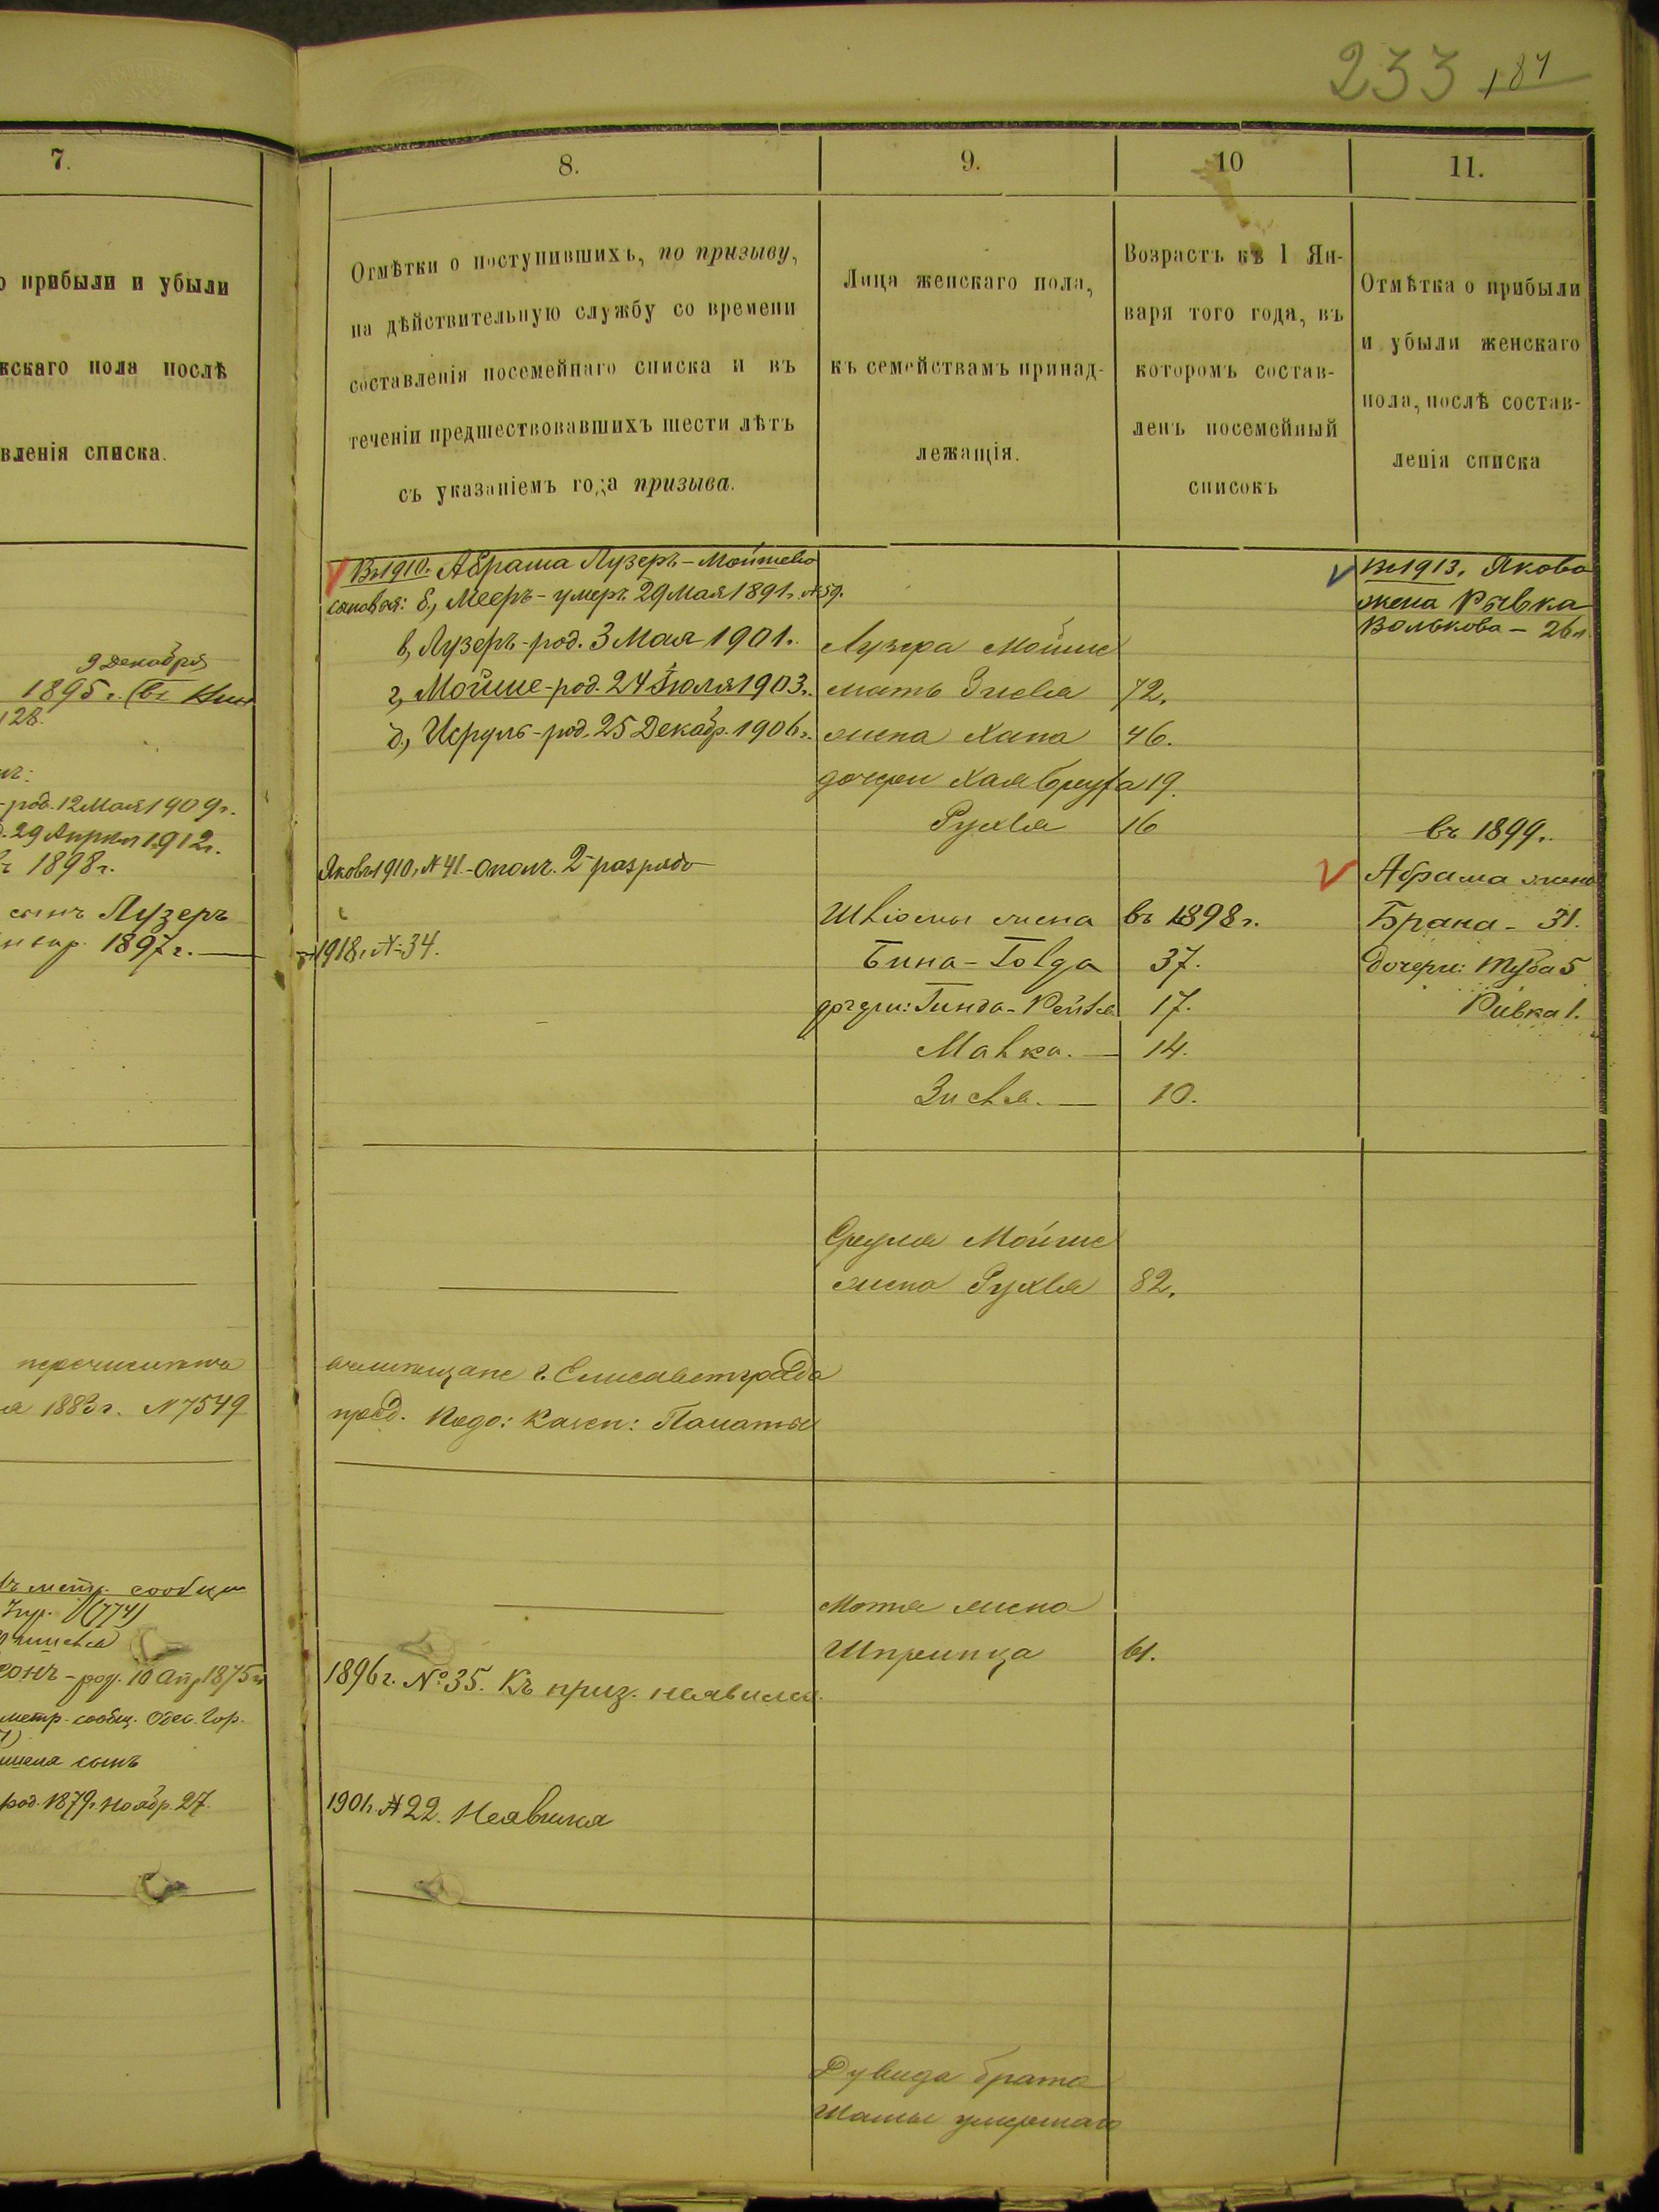 233 187
7.
о прибыли и убыли
жскаго пола послѣ
вленія списка.
9 Декабря
1895 г. (въ
128.
-род. 12 Мая 1909 г.
29 Апрѣля 1912 г.
1898 г.
сынъ Лузеръ
1897 г.
перечислитъ
1883 г. N 7549
метр. сообщ
(774)
-род. 10 Апр 1875 г.
метр. сообщ. Одес. Гор.
сынъ
род. 1879 г. Ноябр. 27.
8.
Отмѣтки о поступившихъ, по призыву,
на дѣйствительную службу со времени
составленія посемейнаго списка и въ
теченіи предшествовавшихъ шести лѣтъ
съ указаніемъ года призыва.
Въ 1910. Абрама Лузеръ-Мойшево
сыновья: б, Мееръ-умеръ 29 Мая 1891 г. N 59.
в, Лузеръ-род. 3 Мая 1901 г.
г, Мойше-род. 24 Іюля 1903 г.
д, Исруль-род. 25 Декабр. 1906 г.
Яковъ 1910, N 41.-Ополч. 2 разряда
1918 г. N 34.
г. Елисаветграда
пред. Подо: Казен: Палаты
1896 г. № 35. Къ приз. неявился.
1901 г. N 22. Неявился
9.
Лица женскаго пола,
къ семействамъ принад-
лежащія.
Лузера Мойше
мать Зисля
жена Хана
дочери Хая Брейта
Рухля
Шліомы жена
Бина-Голда
дочери: Гинда-Рейзя
Малка.
Зисля.
Сруля Мойше
жена Рухля
Мотя жена
Шпринца
Дувида брата
умершаго
10
Возрастъ къ 1 Ян-
варя того года, въ
которомъ состав-
ленъ посемейный
списокъ
72.
46.
19.
16
въ 1898 г.
37.
17.
14.
10.
82.
61.
11.
Отмѣтка о прибыли
и убыли женскаго
пола, послѣ состав-
ленія списка
Въ 1913. Якова
жена Рывка
Волькова - 26 л
въ 1899 г.
Абрама жена
Брана - 31.
дочери: Туба 5
Ривка 1.